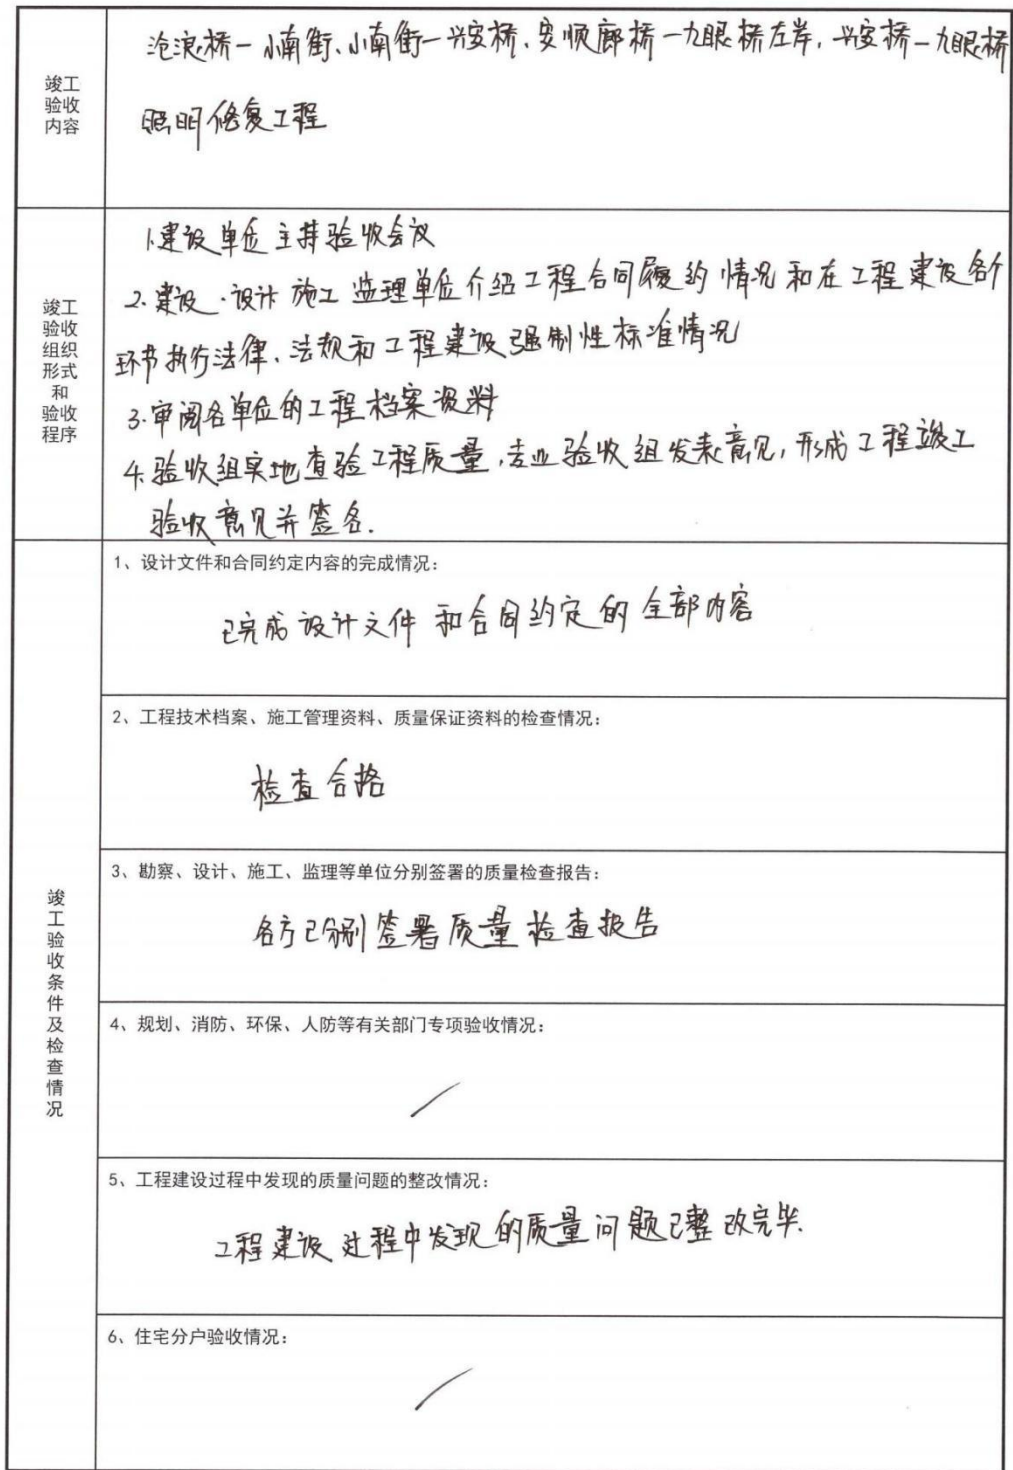 竣工
验收
内容
沧浪桥—小南街、小南街—兴安桥、安顺廊桥—九眼桥左岸,兴安桥—九眼桥
照明修复工程
竣工
验收
组织
形式
和
验收
程序
1.建设单位主持验收会议
2.建设·设计 施工 监理单位介绍工程合同履约情况和在工程建设各个
环节执行法律、法规和工程建设强制性标准情况
3.审阅各单位的工程档案资料
4.验收组实地查验工程质量,专业验收组发表意见,形成工程竣工
验收意见并签名.
竣工验收条件及检查情况
1、设计文件和合同约定内容的完成情况:
已完成设计文件和合同约定的全部内容
2、工程技术档案、施工管理资料、质量保证资料的检查情况:
检查合格
3、勘察、设计、施工、监理等单位分别签署的质量检查报告:
各方已分别签署质量检查报告
4、规划、消防、环保、人防等有关部门专项验收情况:
5、工程建设过程中发现的质量问题的整改情况:
工程建设过程中发现的质量问题已整改完毕.
6、住宅分户验收情况: